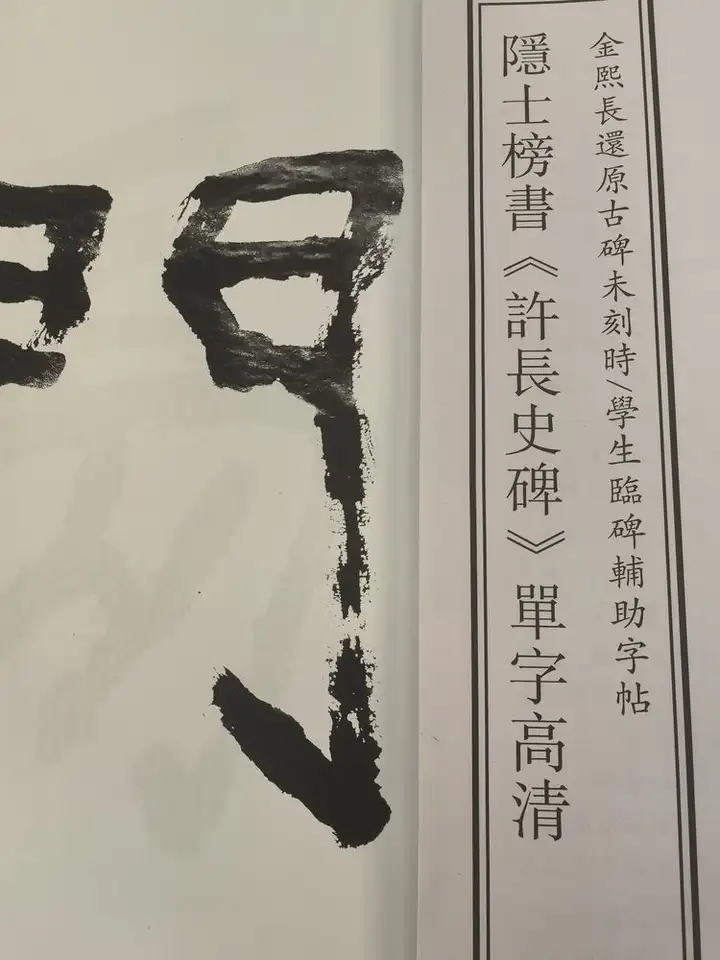 金熙長還原古碑未刻時/學生臨碑輔助字帖
隱士榜書《許長史碑》單字高清
門